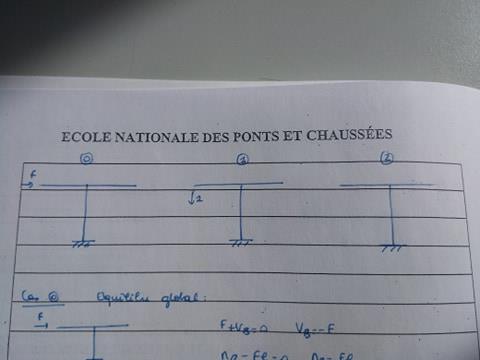 ECOLE NATIONALE DES PONTS ET CHAUSSÉES
0 1 2
F
1
Cas 0 Equilibre global:
F F+VB=0 VB=-F